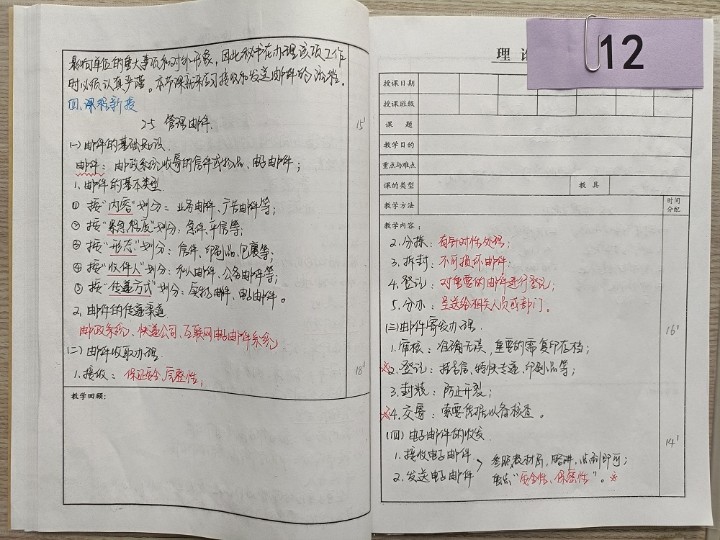 影响单位的重大事项和对外形象，因此秘书在办理该项工作
时必须认真严谨。本节课我们学习接收和发送邮件的流程。
四、课程新授
2-5 管理邮件
15'
(一)邮件的基础知识
邮件：由邮政系统收寄的信件或物品、电子邮件；
1.邮件的基本类型
① 按"内容"划分：业务邮件、广告邮件等；
② 按"紧急程度"划分：急件、平信等；
③ 按"形态"划分：信件、印刷品、包裹等；
④ 按"收件人"划分：私人邮件、公务邮件等；
⑤ 按"传递方式"划分：邮件、电子邮件。
2.邮件的传递渠道
邮政系统、快递公司、互联网电子邮件系统
(二)邮件收取办理
1.接收：保证安全、完整性；
18'
教学回顾：
理论
12
授课日期
授课班级
课题
教学目的
重点与难点
课的类型
教具
教学方法
时间分配
教学内容：
2.分拣：有针对性处理；
3.拆封：不可损坏邮件；
4.登记：对重要的邮件进行登记；
5.分办：呈送给相关人员或部门。
(三)邮件寄发办理
16'
1.审核：准确无误，重要的需复印存档；
2.登记：挂号信、特快专递、印刷品等；
3.封装：防止开裂；
4.交寄：索要凭据以备核查。
(四)电子邮件的收发
14'
1.接收电子邮件
2.发送电子邮件
参照教材后，略讲，法则即可；
重点"安全性、保密性"。